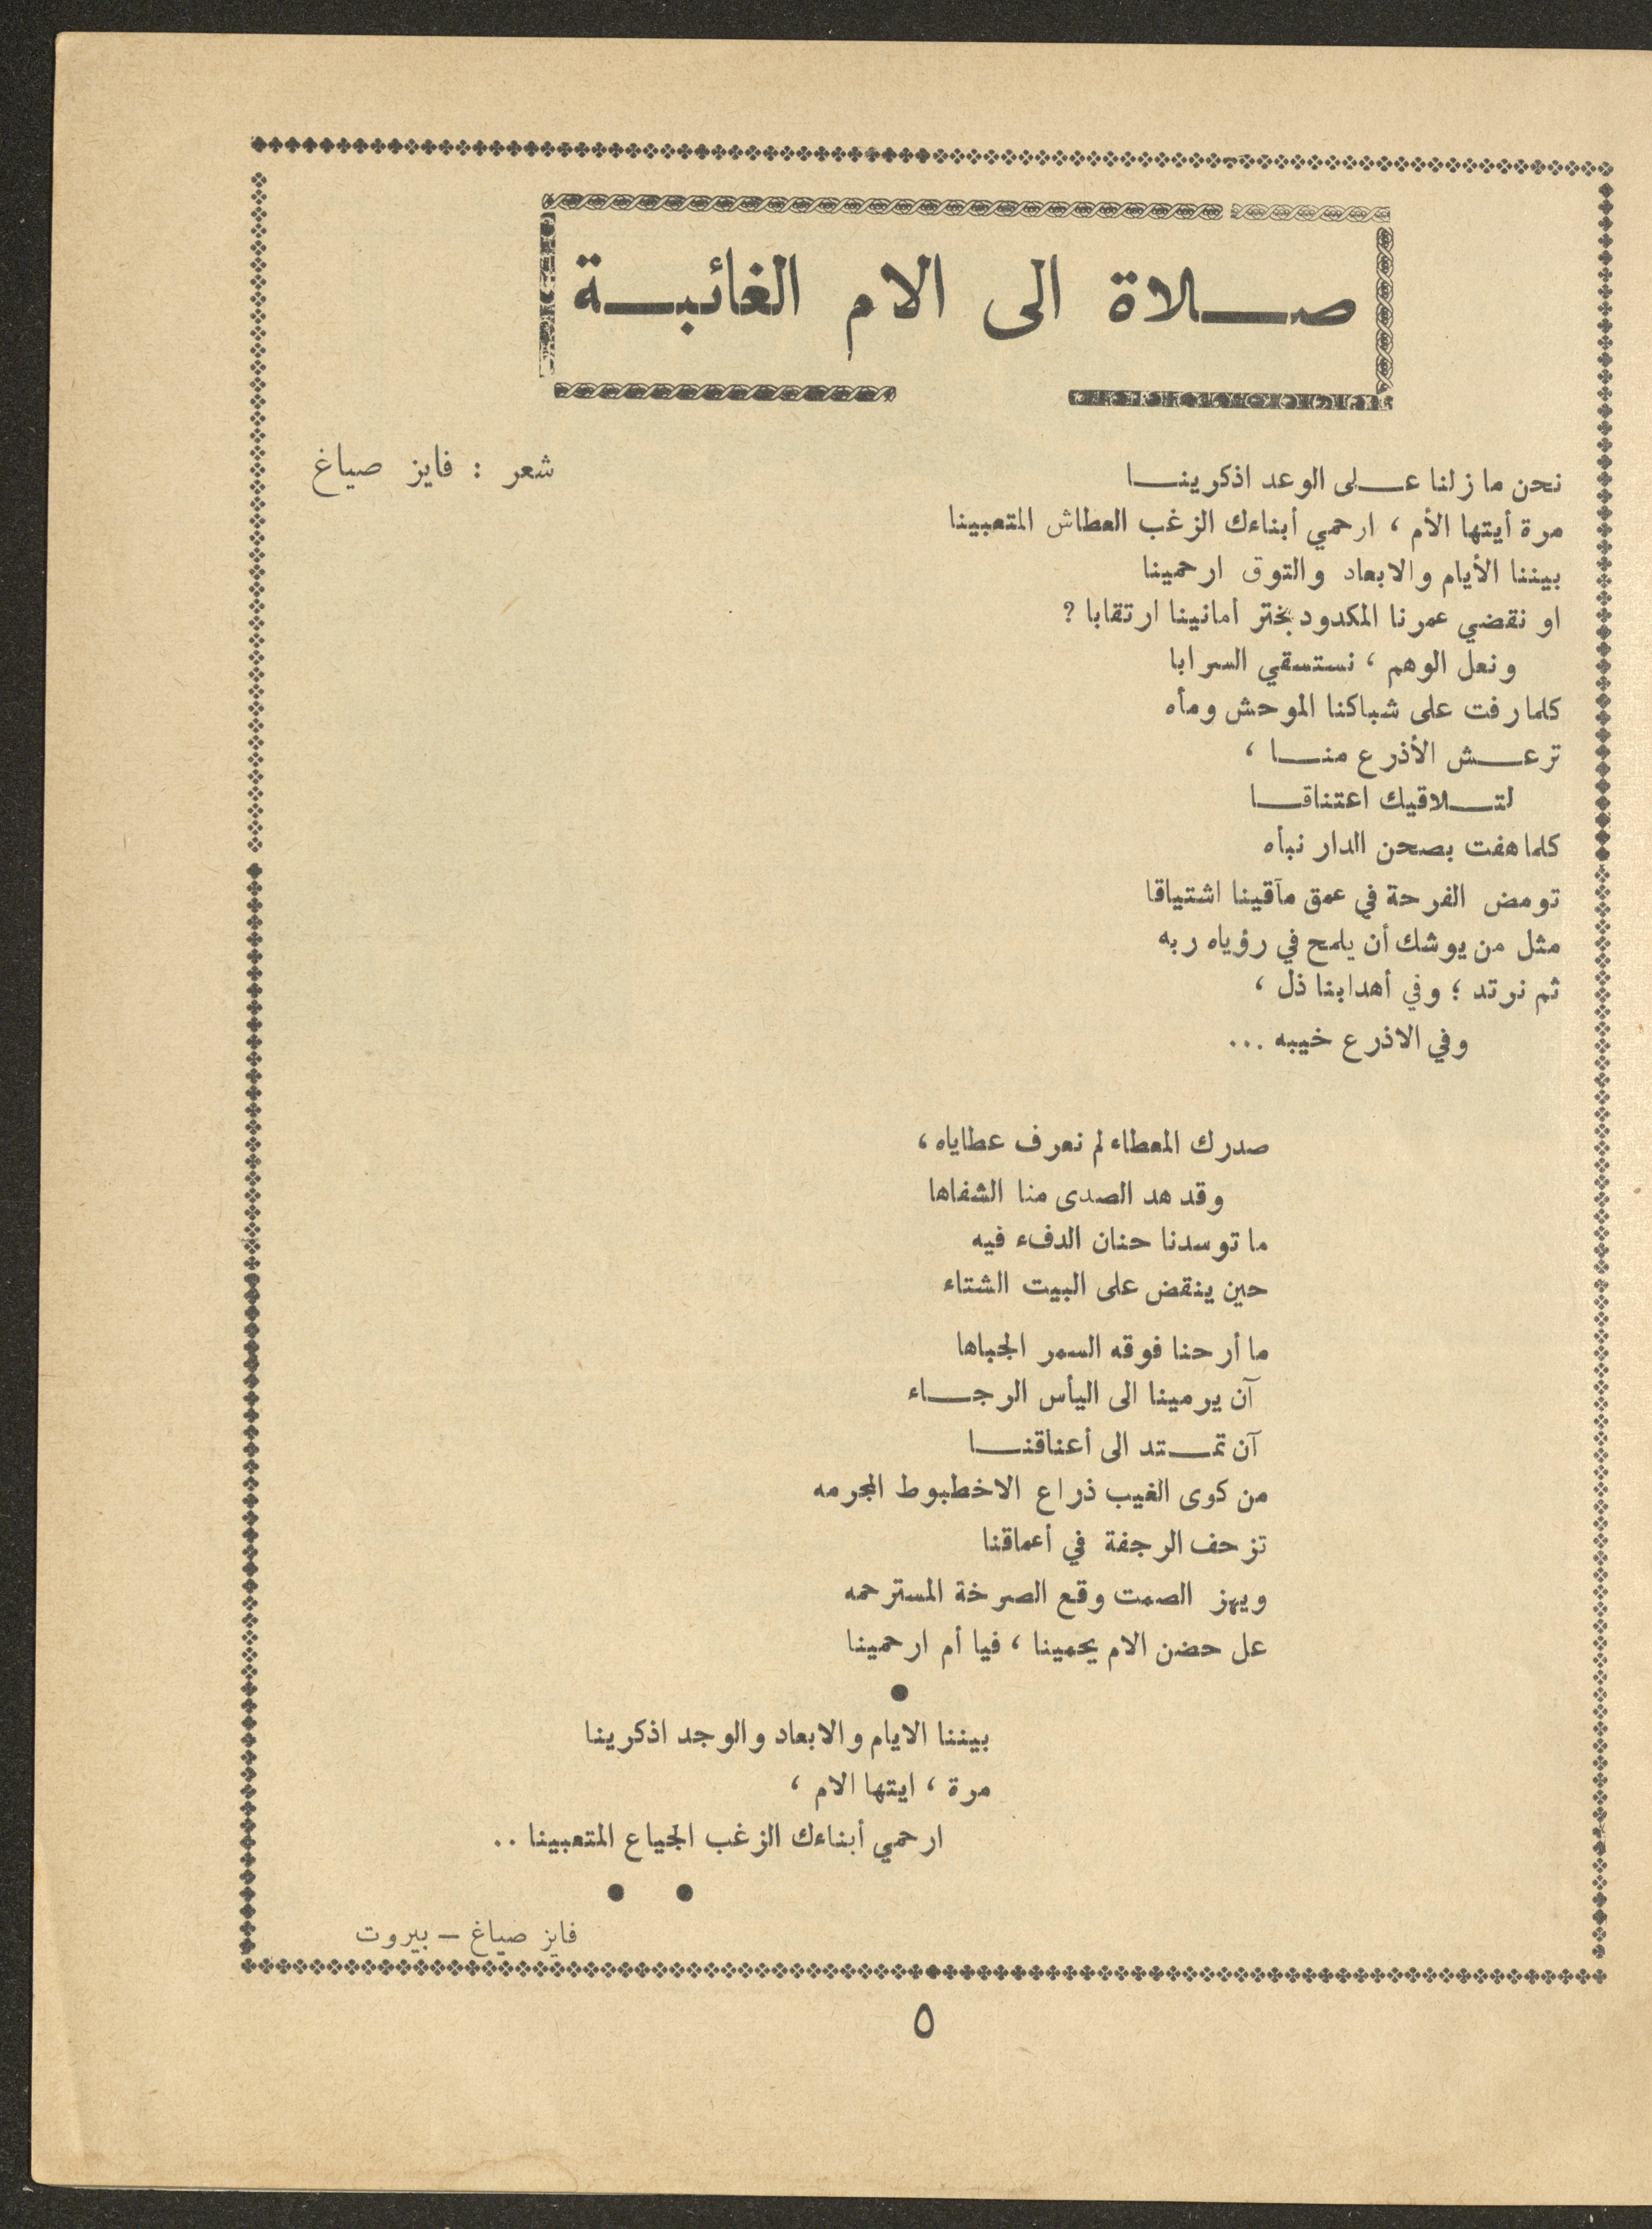 صلاة الى الام الغائبة
شعر : فايز صياغ
نحن ما زلنا على الوعد اذكرينا
مرة أيتها الأم ، ارحمي أبناءك الزغب العطاش المتعبينا
بيننا الأيام والابعاد والتوق ارحمينا
او نقضي عمرنا المكدود نجتر أمانينا ارتقابا ?
ونعل الوهم ، نستسقي السرابا
كلما رفت على شباكنا الموحش ومأه
ترعش الأذرع منا ،
لتلاقيك اعتناقا
كلما هفت بصحن الدار نبأه
تومض الفرحة في عمق مآقينا اشتياقا
مثل من يوشك أن يلمح في رؤياه ربه
ثم نرتد ؛ وفي أهدابنا ذل ،
وفي الاذرع خيبه ...
صدرك المعطاء لم نعرف عطاياه ،
وقد هد الصدى منا الشفاها
ما توسدنا حنان الدفء فيه
حين ينقض على البيت الشتاء
ما أرحنا فوقه السمر الجباها
آن يرمينا الى اليأس الرجاء
آن تمتد الى أعناقنا
من كوى الغيب ذراع الاخطبوط المجرمه
تزحف الرجفة في أعماقنا
ويهز الصمت وقع الصرخة المسترحمه
عل حضن الام يحمينا ، فيا أم ارحمينا
●
بيننا الايام والابعاد والوجد اذكرينا
مرة ، ايتها الام ،
ارحمي أبناءك الزغب الجياع المتعبينا ..
● ●
فايز صياغ – بيروت
٥